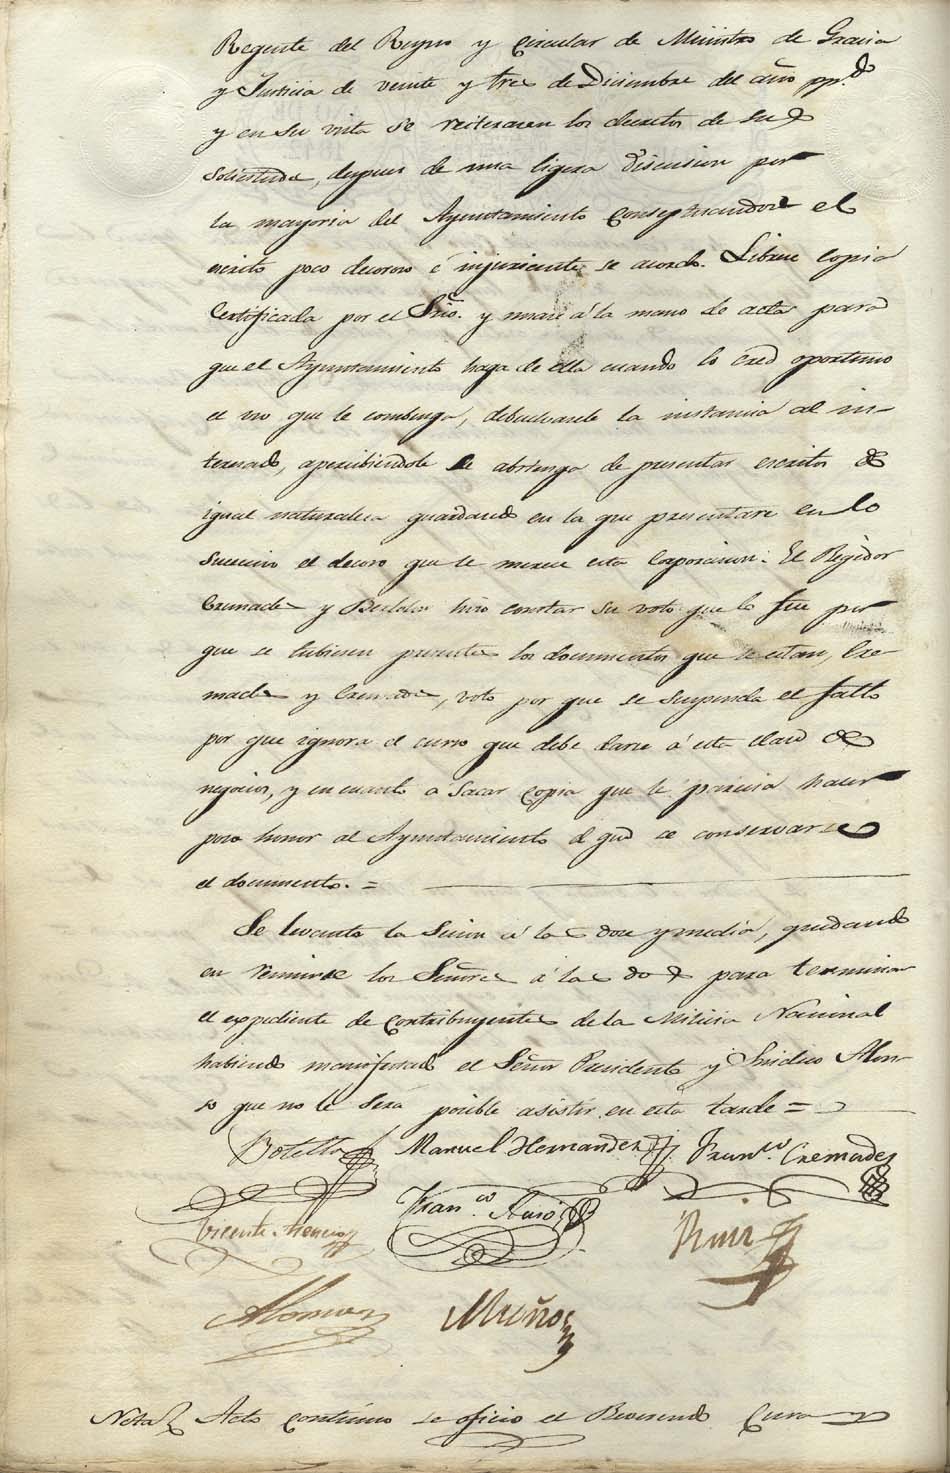 Regente del Reyno y Circular de Ministro de Gracia
y Justicia de veinte y tres de Diciembre del año pp.do
y en su vista se reiteraren los decretos de sus
solicitudes, despues de una ligera discusion por
la mayoria del Ayuntamiento conseptuandose el
escrito poco decoroso é injuriente se acordó. Librese copia
Certificada por el Srio. y unase á la mano de acta para
que el Ayuntamiento haga de ella cuando lo crea oportuno
el uso que le combenga, debuelvasele la instancia al in-
teresado, apercibiendole se abstenga de presentar escritos de
igual naturaleza guardando en la que presentare en lo
sucesivo el decoro que se merece esta Corporacion. El Regidor
Cremades y hizo constar su voto que lo fue por
que se tubiesen presentes los documentos que se citan, Cre-
mades y Cremades, voto por que se suspenda el fallo
por que ignora el curso que debe darse á esta clase de
negocios, y en cuanto a sacar copia que le parecia hacer
poco honor al Ayuntamiento el que se conservase
el documento. =
Se levanto la Sesion á las doce y media, quedando
en reunirse los Señores á las dos para terminar
el expediente de contribuyentes de la Milicia Nacional
habiendo manifestado el Señor Presidente y Sindico Alon-
so que no les sera posible asistir en esta tarde =
Botella Manuel Hernandez Fran.co Cremades
Vicente Fran.co
Ruiz
Alonso Muños
Nota Acto continuo se oficio el Reverendo Cura